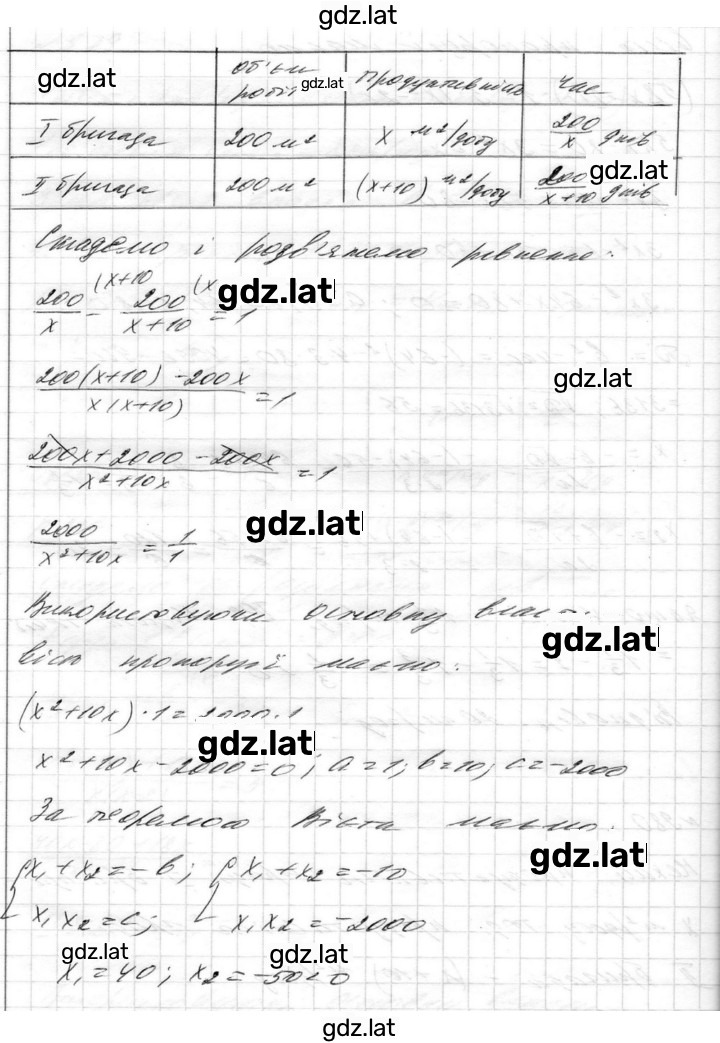 gdz.lat
gdz.lat об'єм роботи gdz.lat Продуктивність час
I бригада 200 м² x м²/добу 200/x днів
II бригада 200 м² (x+10) м²/добу 200/x+10 днів
gdz.lat
Складемо і розв'яжемо рівняння:
200/x (x+10 - 200/x+10 (x = 1
gdz.lat
200(x+10) - 200x / x(x+10) = 1
gdz.lat
200x + 2000 - 200x / x² + 10x = 1
2000 / x² + 10x = 1/1
gdz.lat
Використовуючи основну влас-
gdz.lat
вість пропорції маємо:
(x² + 10x) · 1 = 2000 · 1
gdz.lat
x² + 10x - 2000 = 0; a = 1; b = 10; c = -2000
За теоремою Вієта маємо:
gdz.lat
{ x₁ + x₂ = -b; { x₁ + x₂ = -10
x₁ x₂ = c; x₁ x₂ = -2000
gdz.lat gdz.lat
x₁ = 40; x₂ = -50 < 0
gdz.lat